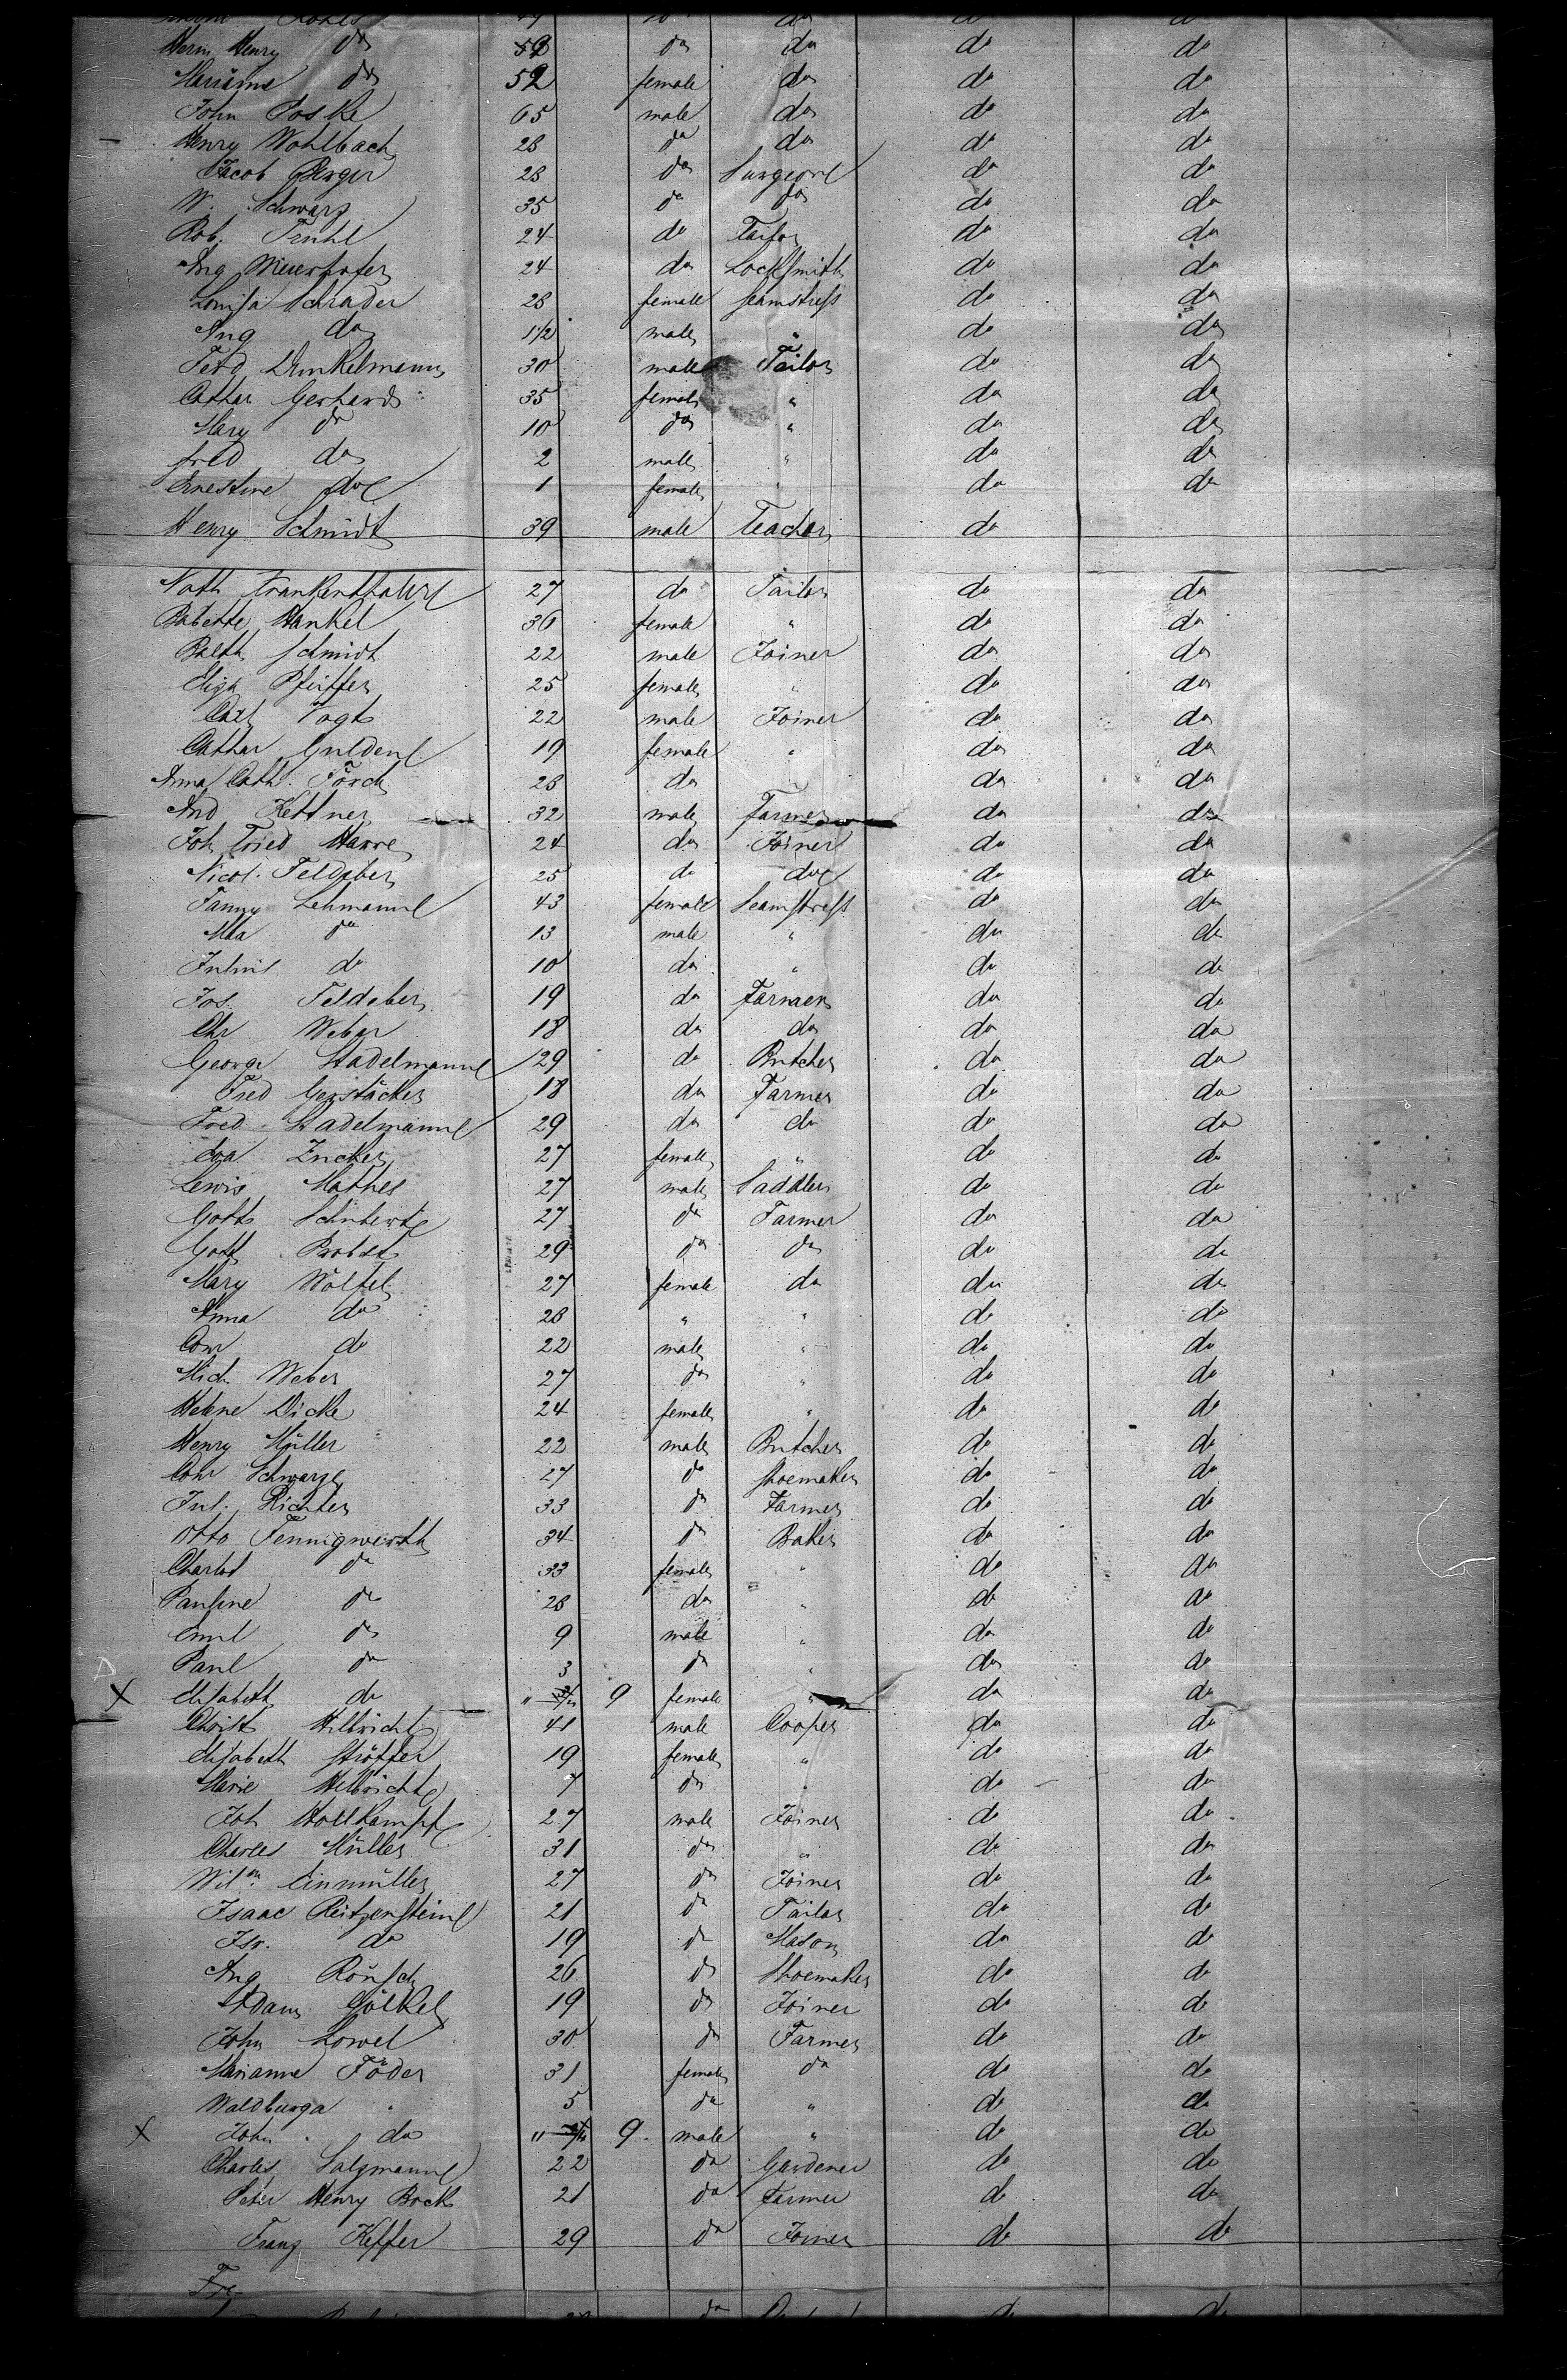 Herm Henry do 59 do do do do
Mariana do 52 female do do do
John Poske 65 male do do do
Henry Wohlbach 28 do do do do
Jacob Berger 28 do Surgeon do do
W. Schwarz 35 do do do do
Rob. Truhl 24 do Tailor do do
Aug Meierhofer 24 do Locksmith do do
Louisa Schrader 28 female seamstress do do
Aug do 1 1/2 male " do do
Ferd Dunkelmann 30 male Tailor do do
Cathar Gerhard 35 female " do do
Mary do 10 do " do do
Fred do 2 male " do do
Ernestine do 1 female " do do
Henry Schmidt 39 male Teacher do
Nath Krankenthaler 27 do Tailor do do
Babette Hankel 36 female " do do
Balth Schmidt 22 male Joiner do do
Eliza Pfeiffer 25 female " do do
Carl Vogt 22 male Joiner do do
Cathar Gulden 19 female " do do
Anna Cath. Förch 28 do do do
And Kettner 32 male Farmer do do
Joh Fried Harre 24 do Joiner do do
Nicol. Feldaber 25 do do do do
Fanny Lehmann 43 female Seamstress do do
Max do 13 male " do do
Julius do 10 do " do do
Jos. Feldaber 19 do Farmer do do
Chr Weber 18 do do do do
George Stadelmann 29 do Butcher do do
Fred Gerstäcker 18 do Farmer do do
Fred Stadelmann 29 do do do do
Eva Zucker 27 female " do do
Lewis Mathes 27 male Saddler do do
Gottl Schubert 27 do Farmer do do
Gottf Probst 29 do do do do
Mary Wölfel 27 female do do do
Anna do 28 " " do do
Conr do 22 male " do do
Mich Weber 27 do " do do
Helene Dicke 24 female " do do
Henry Müller 22 male Butcher do do
Conr Schwarze 27 do shoemaker do do
Jul. Richter 33 do Farmer do do
Otto Fennigwerth 34 do Baker do do
Charlot do 33 female " do do
Pauline do 28 do " do do
Emil do 9 male " do do
Paul do 3 do " do do
X Elisabeth do " 9 female " do do
Christ Hilbricht 41 male Cooper do do
Elisabeth Ströffer 19 female " do do
Marie Helbricht 7 do " do do
Joh Hollkampf 27 male Joiner do do
Charles Müller 31 do " do do
Wilm. Einmüller 27 do Joiner do do
Isaac Reitzenstein 21 do Tailor do do
Isr. do 19 do Mason do do
Aug Rönsch 26 do Shoemaker do do
Adam Gölkel 19 do Joiner do do
John Lowel 30 do Farmer do do
Marianne Föder 31 female do do do
Waldburga " 5 do " do do
X John do " 9 male " do do
Charles Salzmann 22 do Gardener do do
Peter Henry Bock 21 do Farmer do do
Franz Keffer 29 do Joiner do do
Fre